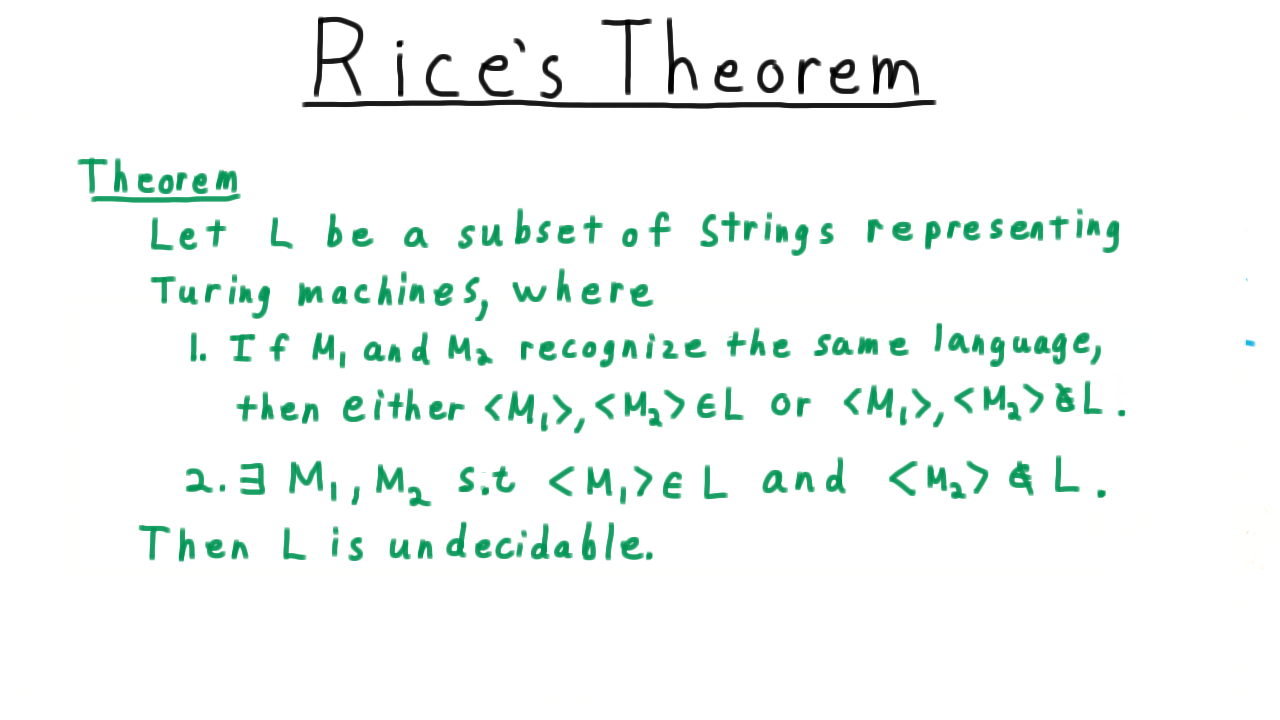 Rice's Theorem
Theorem
Let L be a subset of strings representing
Turing machines, where
1. If M₁ and M₂ recognize the same language,
then either <M₁>, <M₂> ∈ L or <M₁>, <M₂> ∉ L.
2. ∃ M₁, M₂ s.t <M₁> ∈ L and <M₂> ∉ L.
Then L is undecidable.